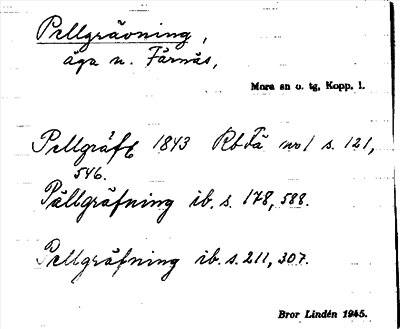 Pellgrävning,
äga n. Färnäs,
Mora sn o. tg, Kopp. l.
Pellgräft 1843 RbFä nr 1 s. 121,
546.
Pällgräfning ib. s. 178, 588.
Pellgräfning ib. s. 211, 307.
Bror Lindén 1945.